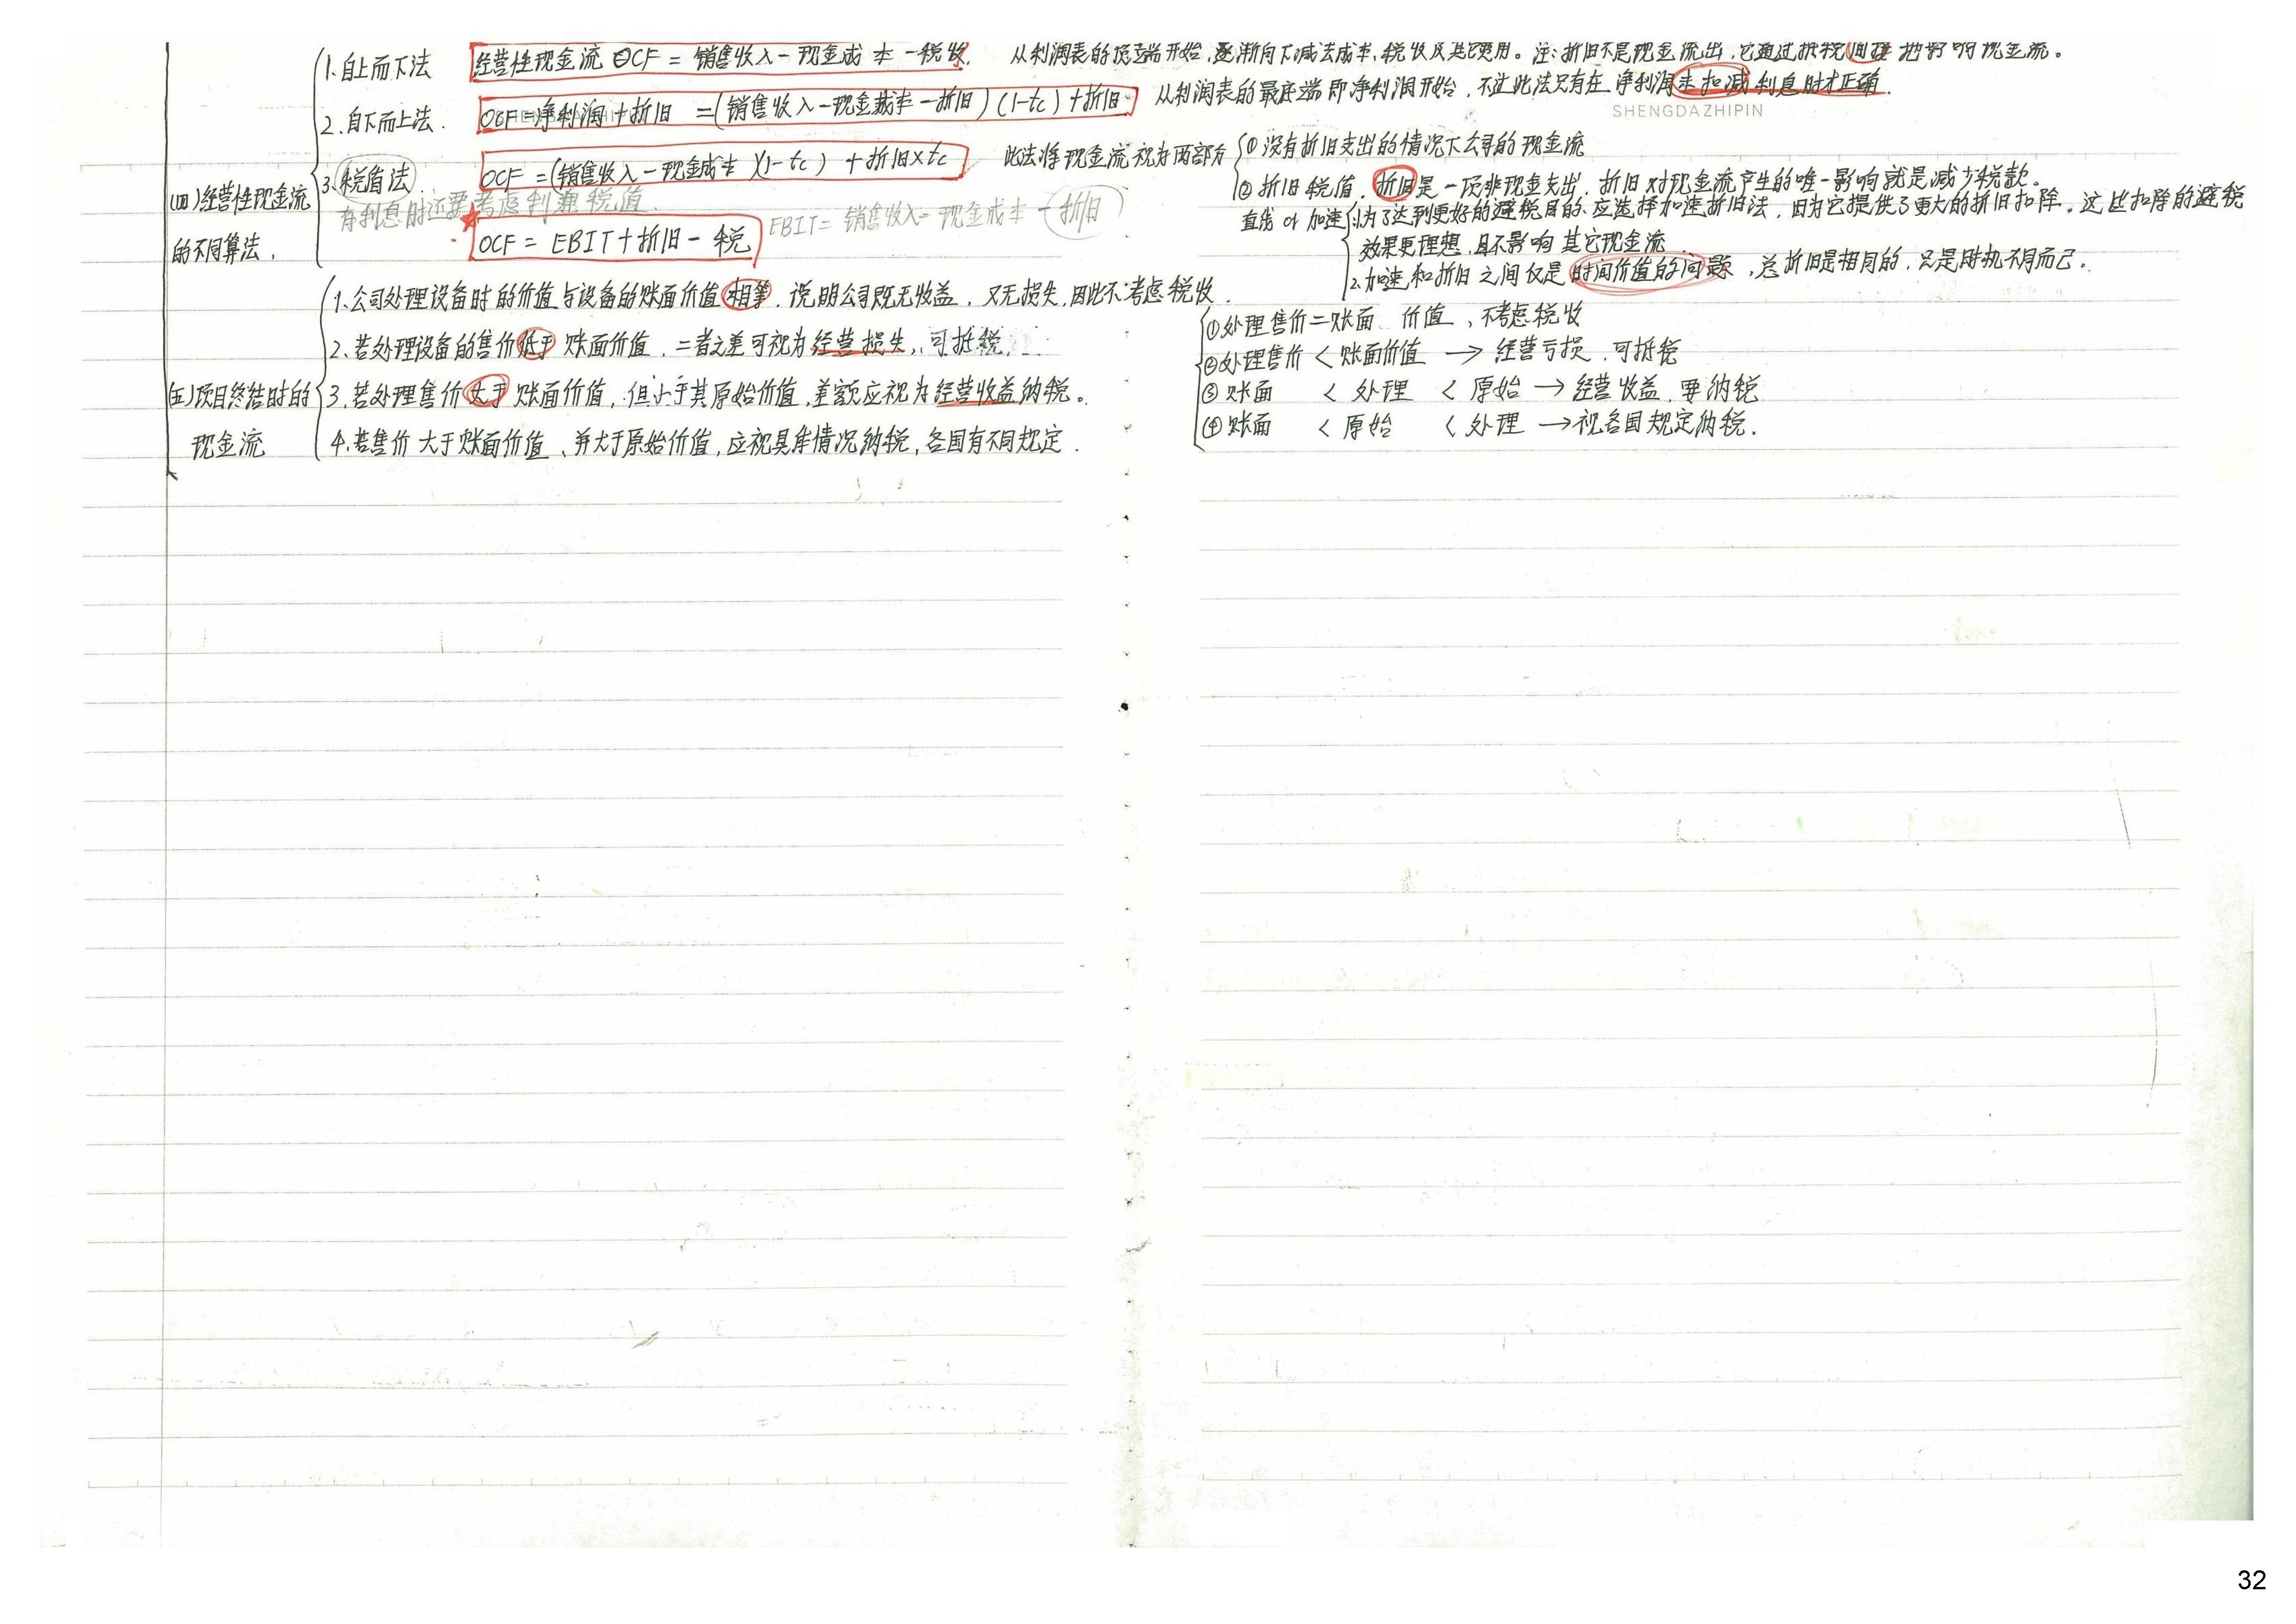 1.自上而下法 经营性现金流 OCF = 销售收入 - 现金成本 - 税收. 从利润表的顶端开始,逐渐向下减去成本,税收及其它费用。注:折旧不是现金流出,它通过抵税间接地影响现金流。
2.自下而上法. OCF = 净利润 + 折旧 = (销售收入 - 现金成本 - 折旧)(1-tc) + 折旧 从利润表的最底端即净利润开始,不过此法只有在净利润未扣减利息时才正确.
SHENGDAZHIPIN
(四)经营性现金流
的不同算法.
3.税盾法. OCF = (销售收入 - 现金成本)(1-tc) + 折旧×tc 此法将现金流视为两部分
①没有折旧支出的情况下公司的现金流
②折旧税值.折旧是一项非现金支出.折旧对现金流产生的唯一影响就是减少税款。
有利息时还要考虑利息税值.
OCF = EBIT + 折旧 - 税 EBIT = 销售收入 - 现金成本 - 折旧
直线 or 加速 1.为了达到更好的避税目的,应选择加速折旧法,因为它提供了更大的折旧扣除。这些扣除的避税
效果更理想,且不影响其它现金流.
2.加速和折旧之间仅是时间价值的问题,总折旧是相同的,只是时机不同而已。
(五)项目终结时的
现金流
1.公司处理设备时的价值与设备的账面价值相等.说明公司既无收益,又无损失,因此不考虑税收.
2.若处理设备的售价低于账面价值,二者之差可视为经营损失,可抵税.
3.若处理售价大于账面价值,但小于其原始价值,差额应视为经营收益纳税。
4.若售价大于账面价值、并大于原始价值,应视具体情况纳税,各国有不同规定.
①处理售价=账面价值、不考虑税收
②处理售价 < 账面价值 → 经营亏损.可抵税
③账面 < 处理 < 原始 → 经营收益.要纳税
④账面 < 原始 < 处理 → 视各国规定纳税.
32